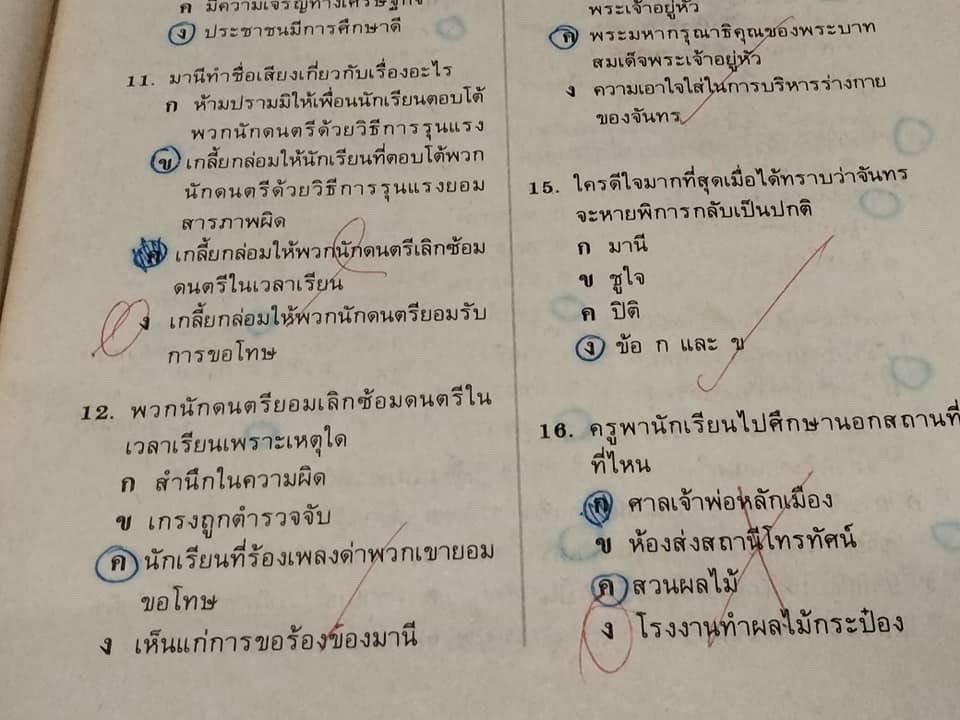 ค มีความเจริญทางเศรษฐกิจ
ง ประชาชนมีการศึกษาดี
11. มานีทำชื่อเสียงเกี่ยวกับเรื่องอะไร
ก ห้ามปรามมิให้เพื่อนนักเรียนตอบโต้
พวกนักดนตรีด้วยวิธีการรุนแรง
ข เกลี้ยกล่อมให้นักเรียนที่ตอบโต้พวก
นักดนตรีด้วยวิธีการรุนแรงยอม
สารภาพผิด
ค เกลี้ยกล่อมให้พวกนักดนตรีเลิกซ้อม
ดนตรีในเวลาเรียน
ง เกลี้ยกล่อมให้พวกนักดนตรียอมรับ
การขอโทษ
12. พวกนักดนตรียอมเลิกซ้อมดนตรีใน
เวลาเรียนเพราะเหตุใด
ก สำนึกในความผิด
ข เกรงถูกตำรวจจับ
ค นักเรียนที่ร้องเพลงด่าพวกเขายอม
ขอโทษ
ง เห็นแก่การขอร้องของมานี
พระเจ้าอยู่หัว
ค พระมหากรุณาธิคุณของพระบาท
สมเด็จพระเจ้าอยู่หัว
ง ความเอาใจใส่ในการบริหารร่างกาย
ของจันทร
15. ใครดีใจมากที่สุดเมื่อได้ทราบว่าจันทร
จะหายพิการกลับเป็นปกติ
ก มานี
ข ชูใจ
ค ปิติ
ง ข้อ ก และ ข
16. ครูพานักเรียนไปศึกษานอกสถานที่
ที่ไหน
ก ศาลเจ้าพ่อหลักเมือง
ข ห้องส่งสถานีโทรทัศน์
ค สวนผลไม้
ง โรงงานทำผลไม้กระป๋อง